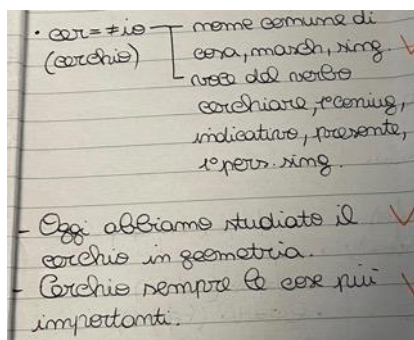 • cer=≠io nome comune di
(cerchio) cosa, masch, sing.
voce del verbo
cerchiare, 1ªconiug,
indicativo, presente,
1ªpers. sing.
- Oggi abbiamo studiato il
cerchio in geometria.
- Cerchio sempre le cose più
importanti.